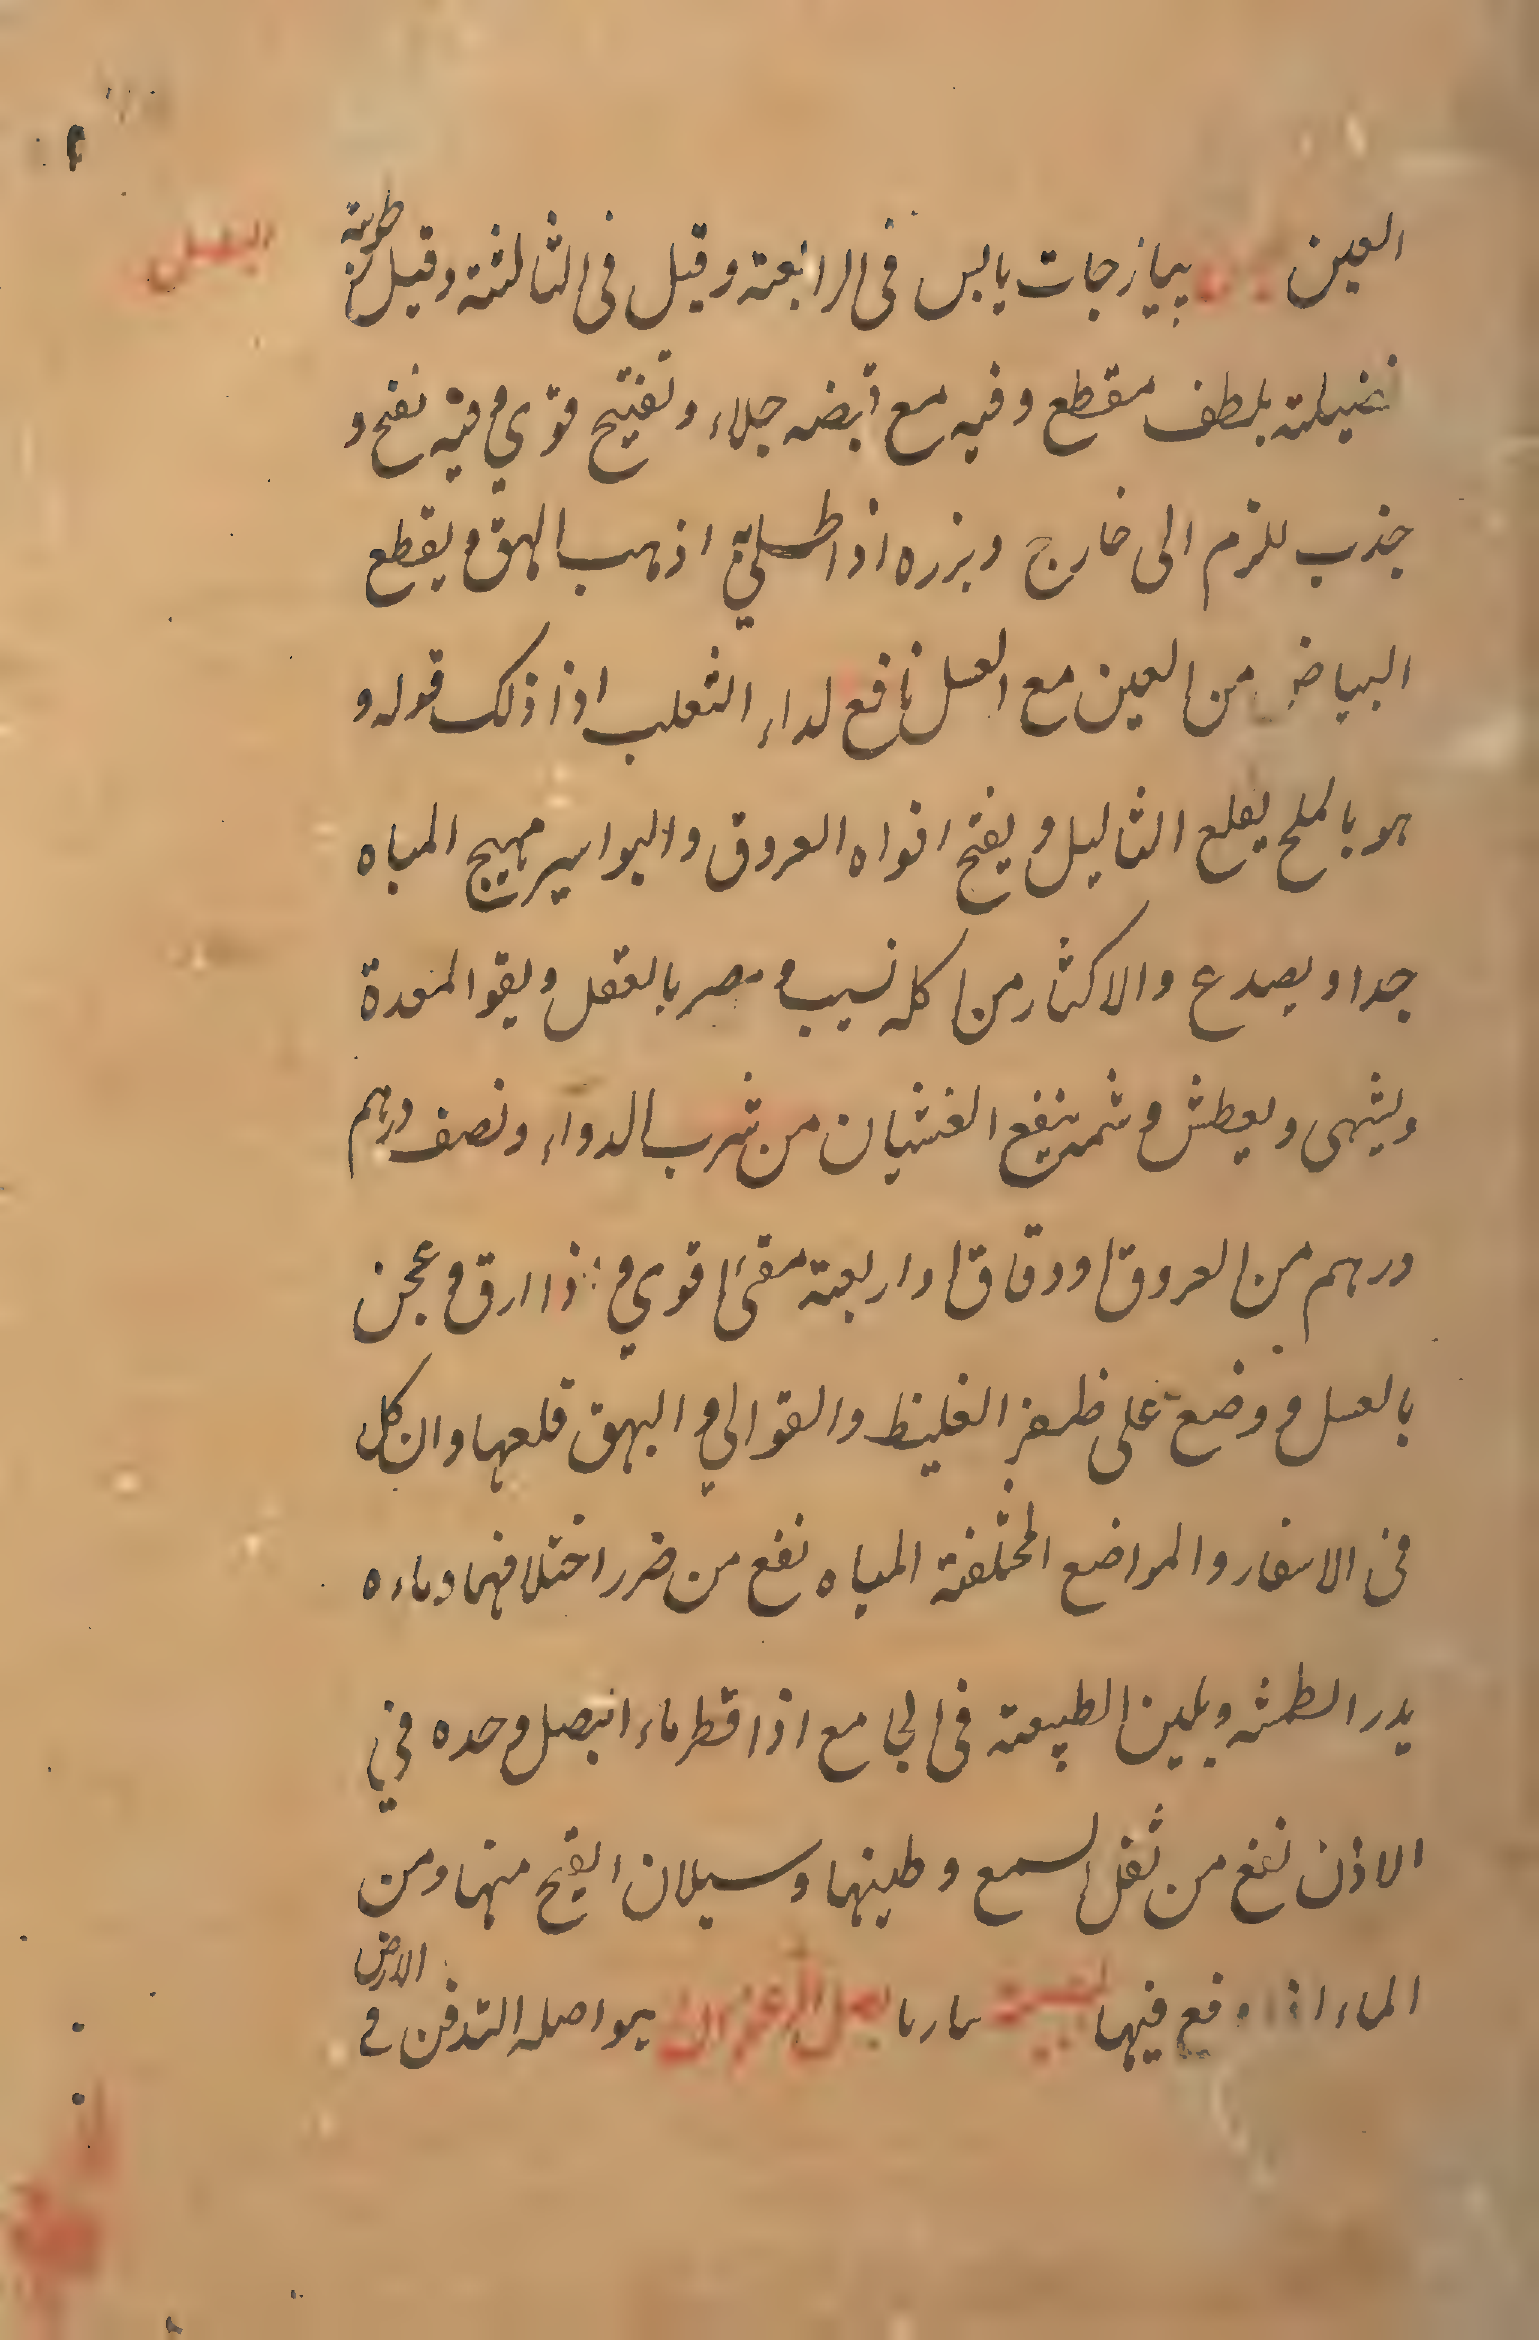 البصل
العين پیاز جات يابس فى الرابعة وقيل فى الثالثة وقيل رطوبة
فضيلة يلطف مقطع وفيه مع قبضه جلاء وتفتيح قوي وفيه نفخ و
جذب للدم الى خارج وبزره اذا طلي به اذهب البهق ويقطع
البياض من العين مع العسل نافع لداء الثعلب اذا ذلك قوله و
هو بالملح يقلع الثاليل ويفتح افواه العروق والبواسير مهيج المباه
جدا ويصدع والاكثار من اكله نسيب ومصر بالعقل ويقو المعدة
ويشهى ويعطش وشمه ينفع الغشيان من شرب الدواء ونصف درهم
درهم من العروق ودقاق واربعة مقئ قوي و اذا ارق وعجن
بالعسل ووضع على ظفر الغليظ والقوالي والبهق قلعها وان كل
فى الاسفار والمواضع المختلفة المياه نفع من ضرر اختلافهما وماءه
يدر الطمث ويلين الطبيعة فى الجامع اذا قطر ماء البصل وحده في
الاذن نفع من ثقل السمع وطينها وسيلان القيح منها ومن
الماء اذا وقع فيها بصل الزعفران هو اصله التدفن في الارض